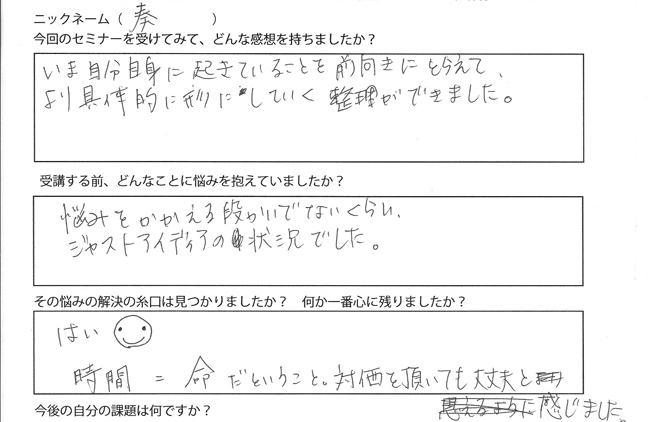 ニックネーム（ 奏 ）
今回のセミナーを受けてみて、どんな感想を持ちましたか？
いま自分自身に起きていることを前向きにとらえて、
より具体的に形にしていく整理ができました。
受講する前、どんなことに悩みを抱えていましたか？
悩みをかかえる段かいでないくらい、
ジャストアイディアの状況でした。
その悩みの解決の糸口は見つかりましたか？ 何か一番心に残りましたか？
はい
時間 = 命 だということ。対価を頂いても大丈夫と
感じました。
今後の自分の課題は何ですか？